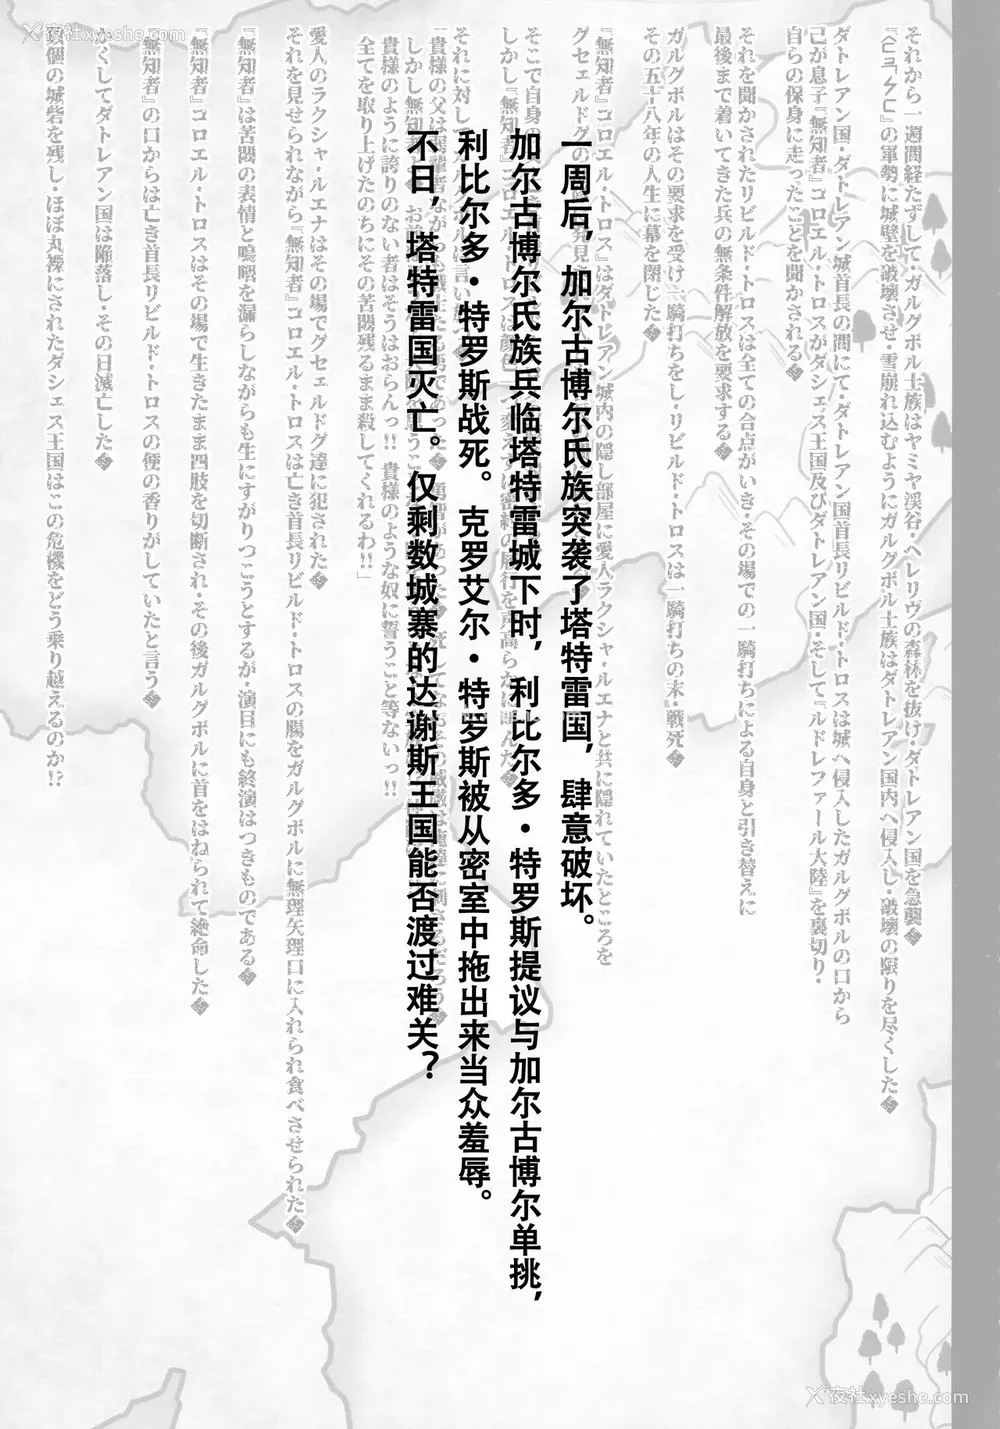 夜社xyeshe.com
夜社xyeshe.com
それから一週間経たずして・ガルグボル士族はヤミヤ渓谷・ヘレリヴの森林を抜け・ダトレアン国を急襲
の軍勢に城壁を破壊させ・雪崩れ込むようにガルグボル士族はダトレアン国内へ侵入し・破壊の限りを尽くした
ダトレアン国・ダトレアン城首長の間にて・ダトレアン国首長リビルド・トロスは城へ侵入したガルグボルの口から
己が息子『無知者』コロエル・トロスがダシェス王国及びダトレアン国・そして『ルドレファール大陸』を裏切り・
自らの保身に走ったことを聞かされる
それを聞かされたリビルド・トロスは全ての合点がいき・その場での一騎打ちによる自身と引き替えに
最後まで着いてきた兵の無条件解放を要求する
ガルグボルはその要求を受け一騎打ちをし・リビルド・トロスは一騎打ちの末・戦死
その五十八年の人生に幕を閉じた
一周后，加尔古博尔氏族突袭了塔特雷国，肆意破坏。
加尔古博尔氏族兵临塔特雷城下时，利比尔多·特罗斯提议与加尔古博尔单挑，
利比尔多·特罗斯战死。克罗艾尔·特罗斯被从密室中拖出来当众羞辱。
不日，塔特雷国灭亡。仅剩数城寨的达谢斯王国能否渡过难关？
全てを取り上げたのちにその苦悶残るまま殺してくれるわ!!」
愛人のラクシャ・ルエナはその場でグセェルドグ達に犯された
それを見せられながら『無知者』コロエル・トロスは亡き首長リビルド・トロスの腸をガルグボルに無理矢理口に入れられ食べさせられた
『無知者』は苦悶の表情と嗚咽を漏らしながらも生にすがりつこうとするが・演目にも終演はつきものである
『無知者』コロエル・トロスはその場で生きたまま四肢を切断され・その後ガルグボルに首をはねられて絶命した
『無知者』の口からは亡き首長リビルド・トロスの便の香りがしていたと言う
かくしてダトレアン国は陥落し・その日滅亡した
夜個の城砦を残し・ほぼ丸裸にされたダシェス王国はこの危機をどう乗り越えるのか!?